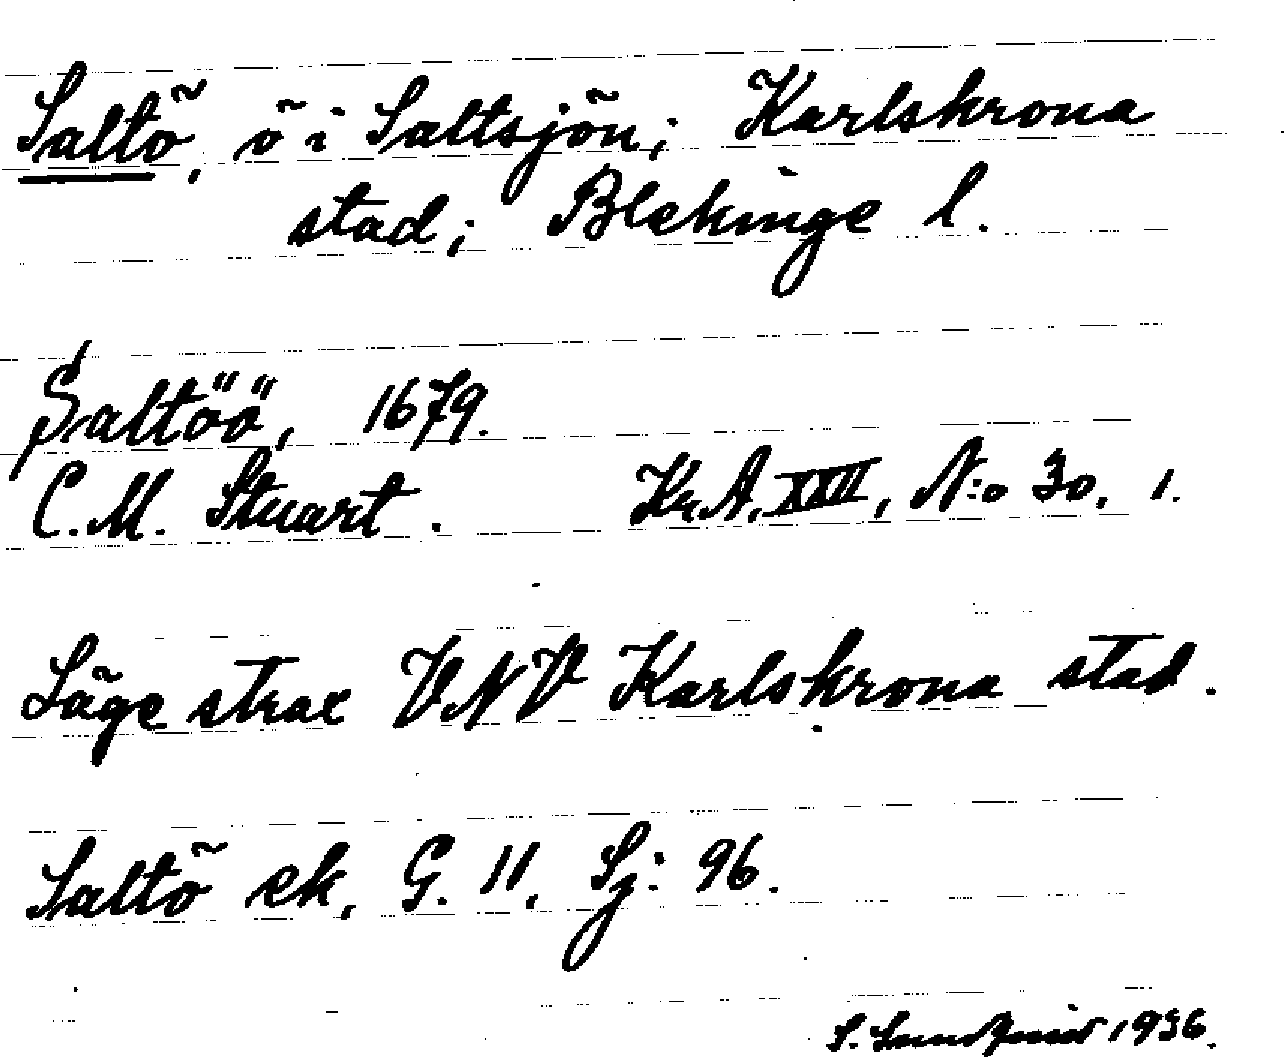 Saltö, ö i Saltsjön; Karlskrona
stad; Blekinge l.
Saltöö, 1679.
C.M. Stuart. Kr.A. XXII, N:o 30, 1.
Läge strax VNV Karlskrona stad.
Saltö ek. G. 11, Sj: 96.
S. Sundqvist 1936.